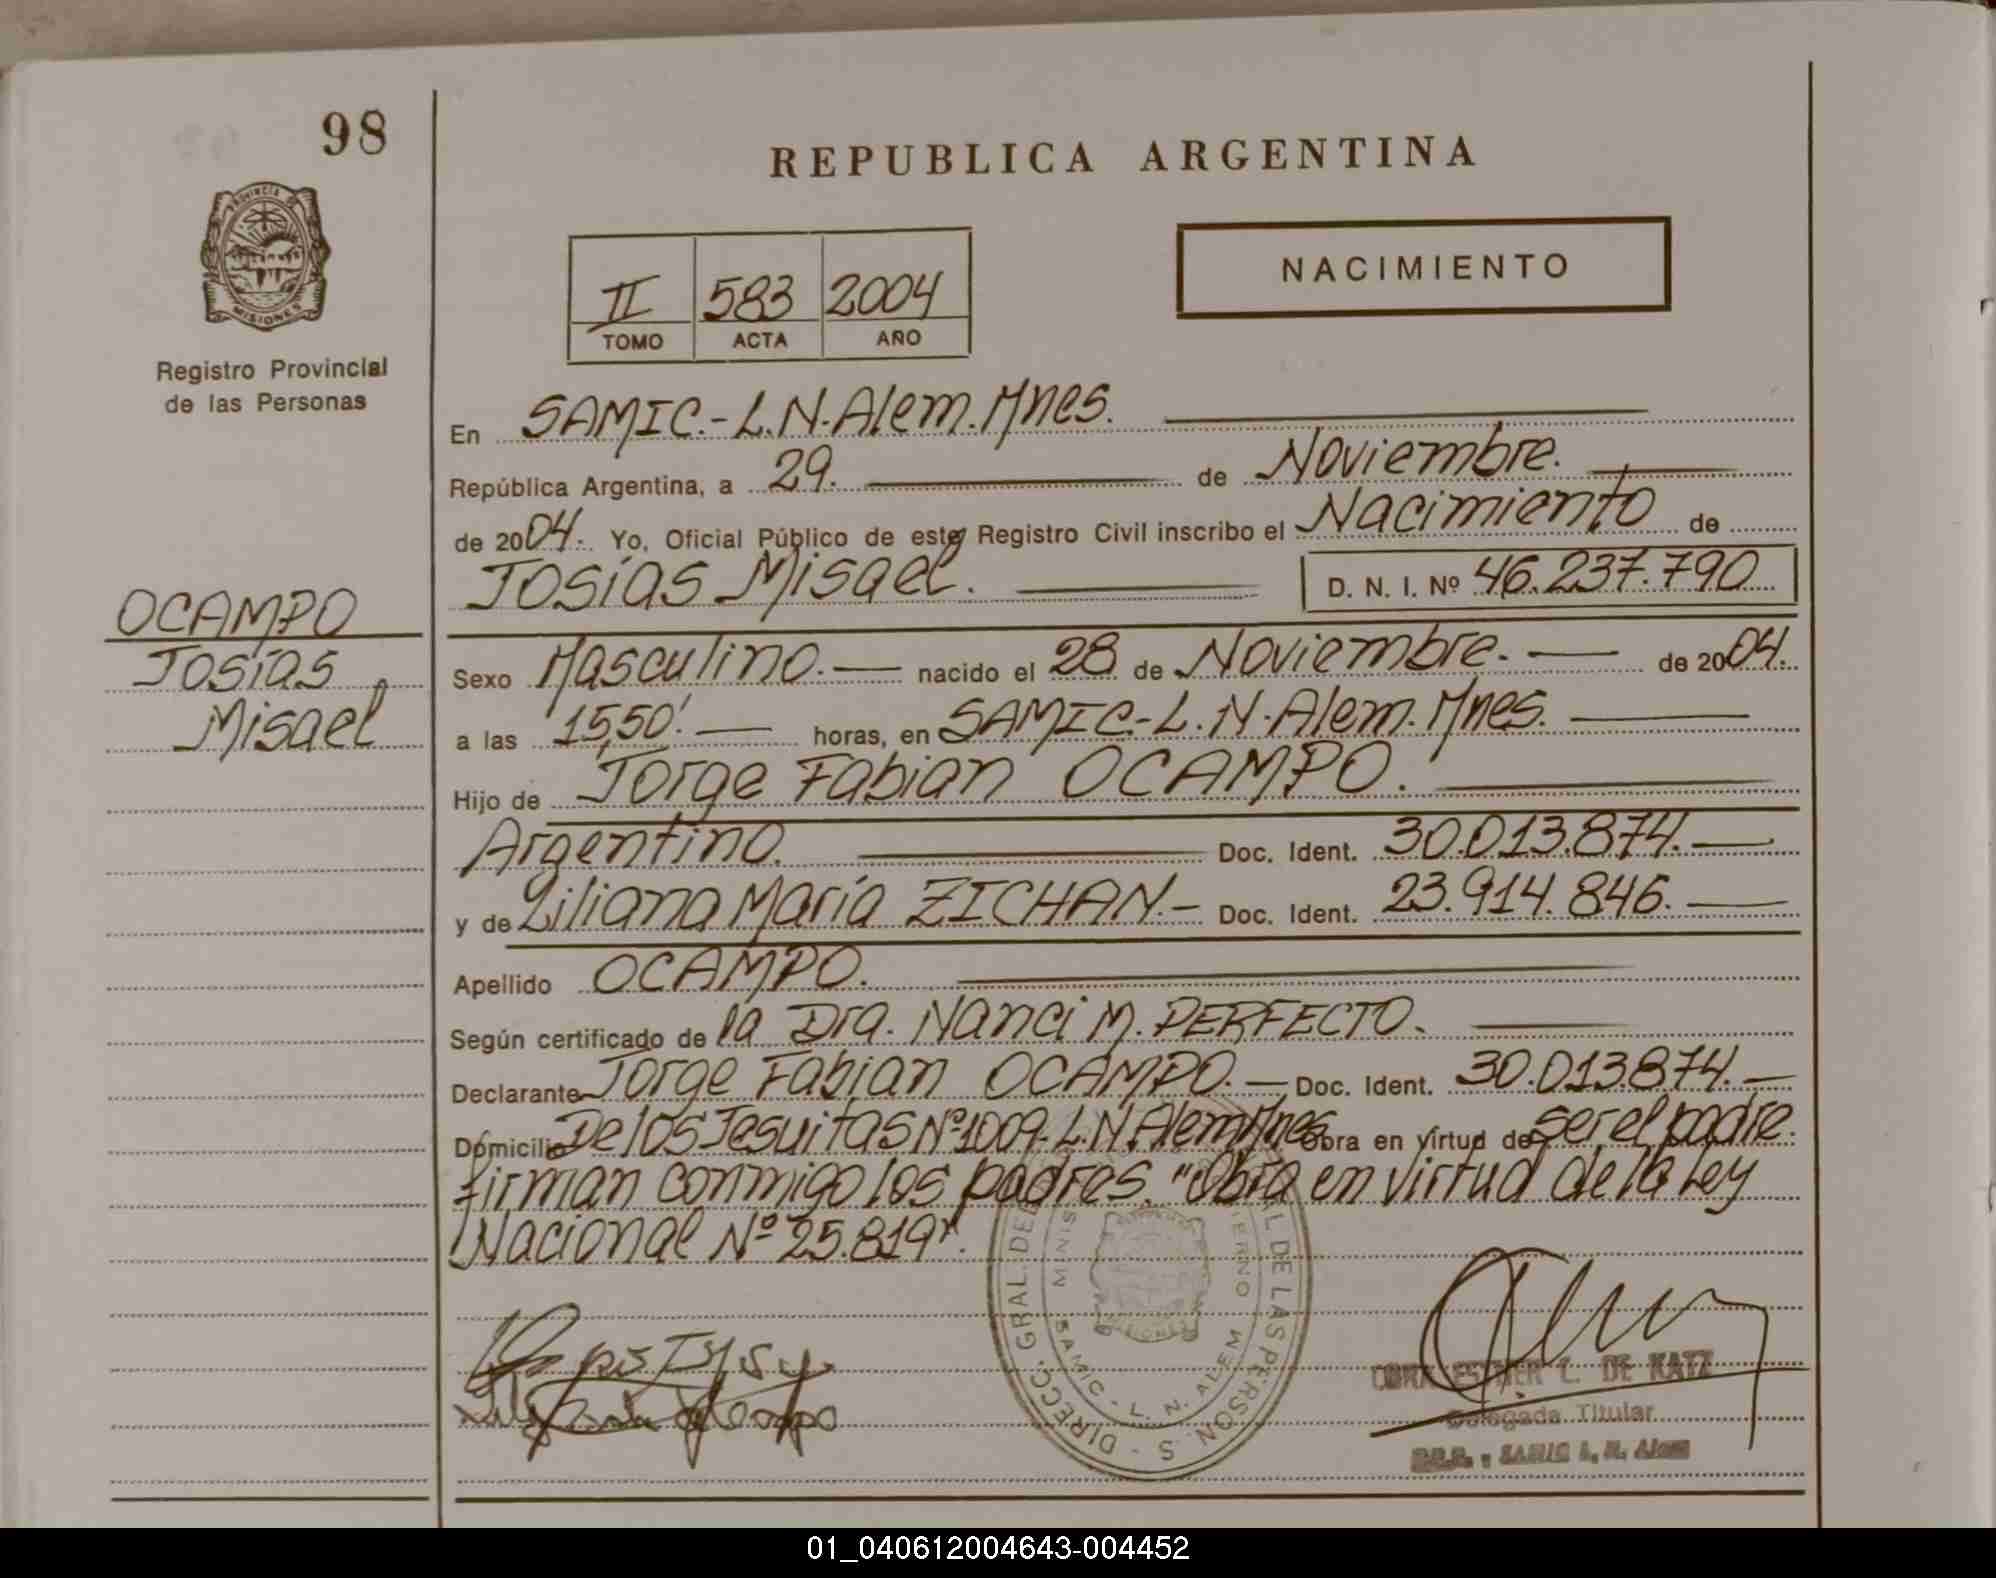 98
REPUBLICA ARGENTINA
PROVINCIA
MISIONES
NACIMIENTO
II 583 2004
TOMO ACTA AÑO
Registro Provincial
de las Personas
En SAMIC.-L.N.Alem.Mnes.
República Argentina, a 29. de Noviembre.
de 2004. Yo, Oficial Público de este Registro Civil inscribo el Nacimiento de
Josías Misael. D. N. I. Nº 46.237.790
OCAMPO
Josías
Misael
Sexo Masculino. nacido el 28 de Noviembre. de 2004.
a las 15,50'. horas, en SAMIC.-L.N.Alem.Mnes.
Hijo de Jorge Fabian OCAMPO.
Argentino. Doc. Ident. 30.013.874.
y de Liliana María ZICHAN.- Doc. Ident. 23.914.846.
Apellido OCAMPO.
Según certificado de la Dra. Nanci M. PERFECTO.
Declarante Jorge Fabian OCAMPO. Doc. Ident. 30.013.874.
Domicilio De los Jesuitas Nº1009. L.N.Alem Mnes. Obra en virtud de ser el padre.
firman conmigo los padres. "Obra en virtud de la Ley
Nacional Nº 25.819".
DIRECC. GRAL. DE LAS PERSON. S
SAMIC - L. N. ALEM
MISIONES
ESTHER C. DE KATZ
Delegada Titular
SAMIC L. N. Alem
01_040612004643-004452